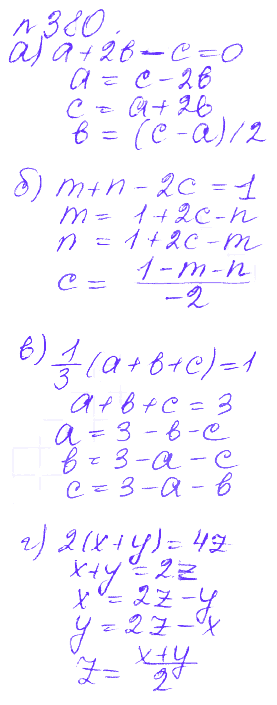 №380.
а) a+2b-c=0
a = c-2b
c = a+2b
b = (c-a)/2
б) m+n-2c=1
m= 1+2c-n
n = 1+2c-m
c = (1-m-n)/-2
в) 1/3(a+b+c)=1
a+b+c=3
a=3-b-c
b=3-a-c
c=3-a-b
г) 2(x+y)=4z
x+y=2z
x=2z-y
y=2z-x
z=(x+y)/2